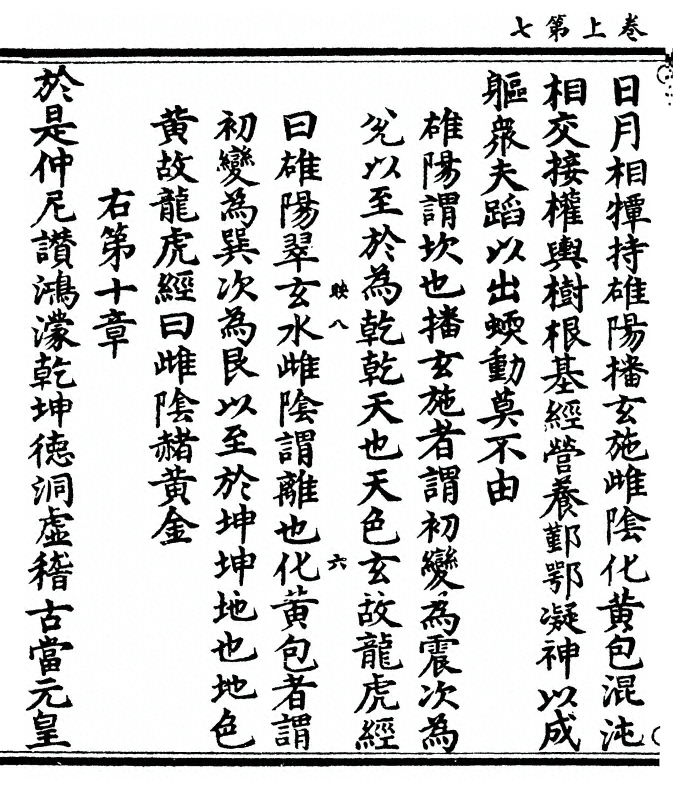 卷上第七
日月相撢持雄陽播玄施雌陰化黃包混沌
相交接權輿樹根基經營養鄞鄂凝神以成
軀衆夫蹈以出蝡動莫不由
雄陽謂坎也播玄施者謂初變為震次為
兊以至於為乾乾天也天色玄故龍虎經
映八
六
曰雄陽翠玄水雌陰謂離也化黃包者謂
初變為巽次為艮以至於坤坤地也地色
黃故龍虎經曰雌陰赭黃金
右第十章
於是仲尼讚鴻濛乾坤德洞虛稽古當元皇